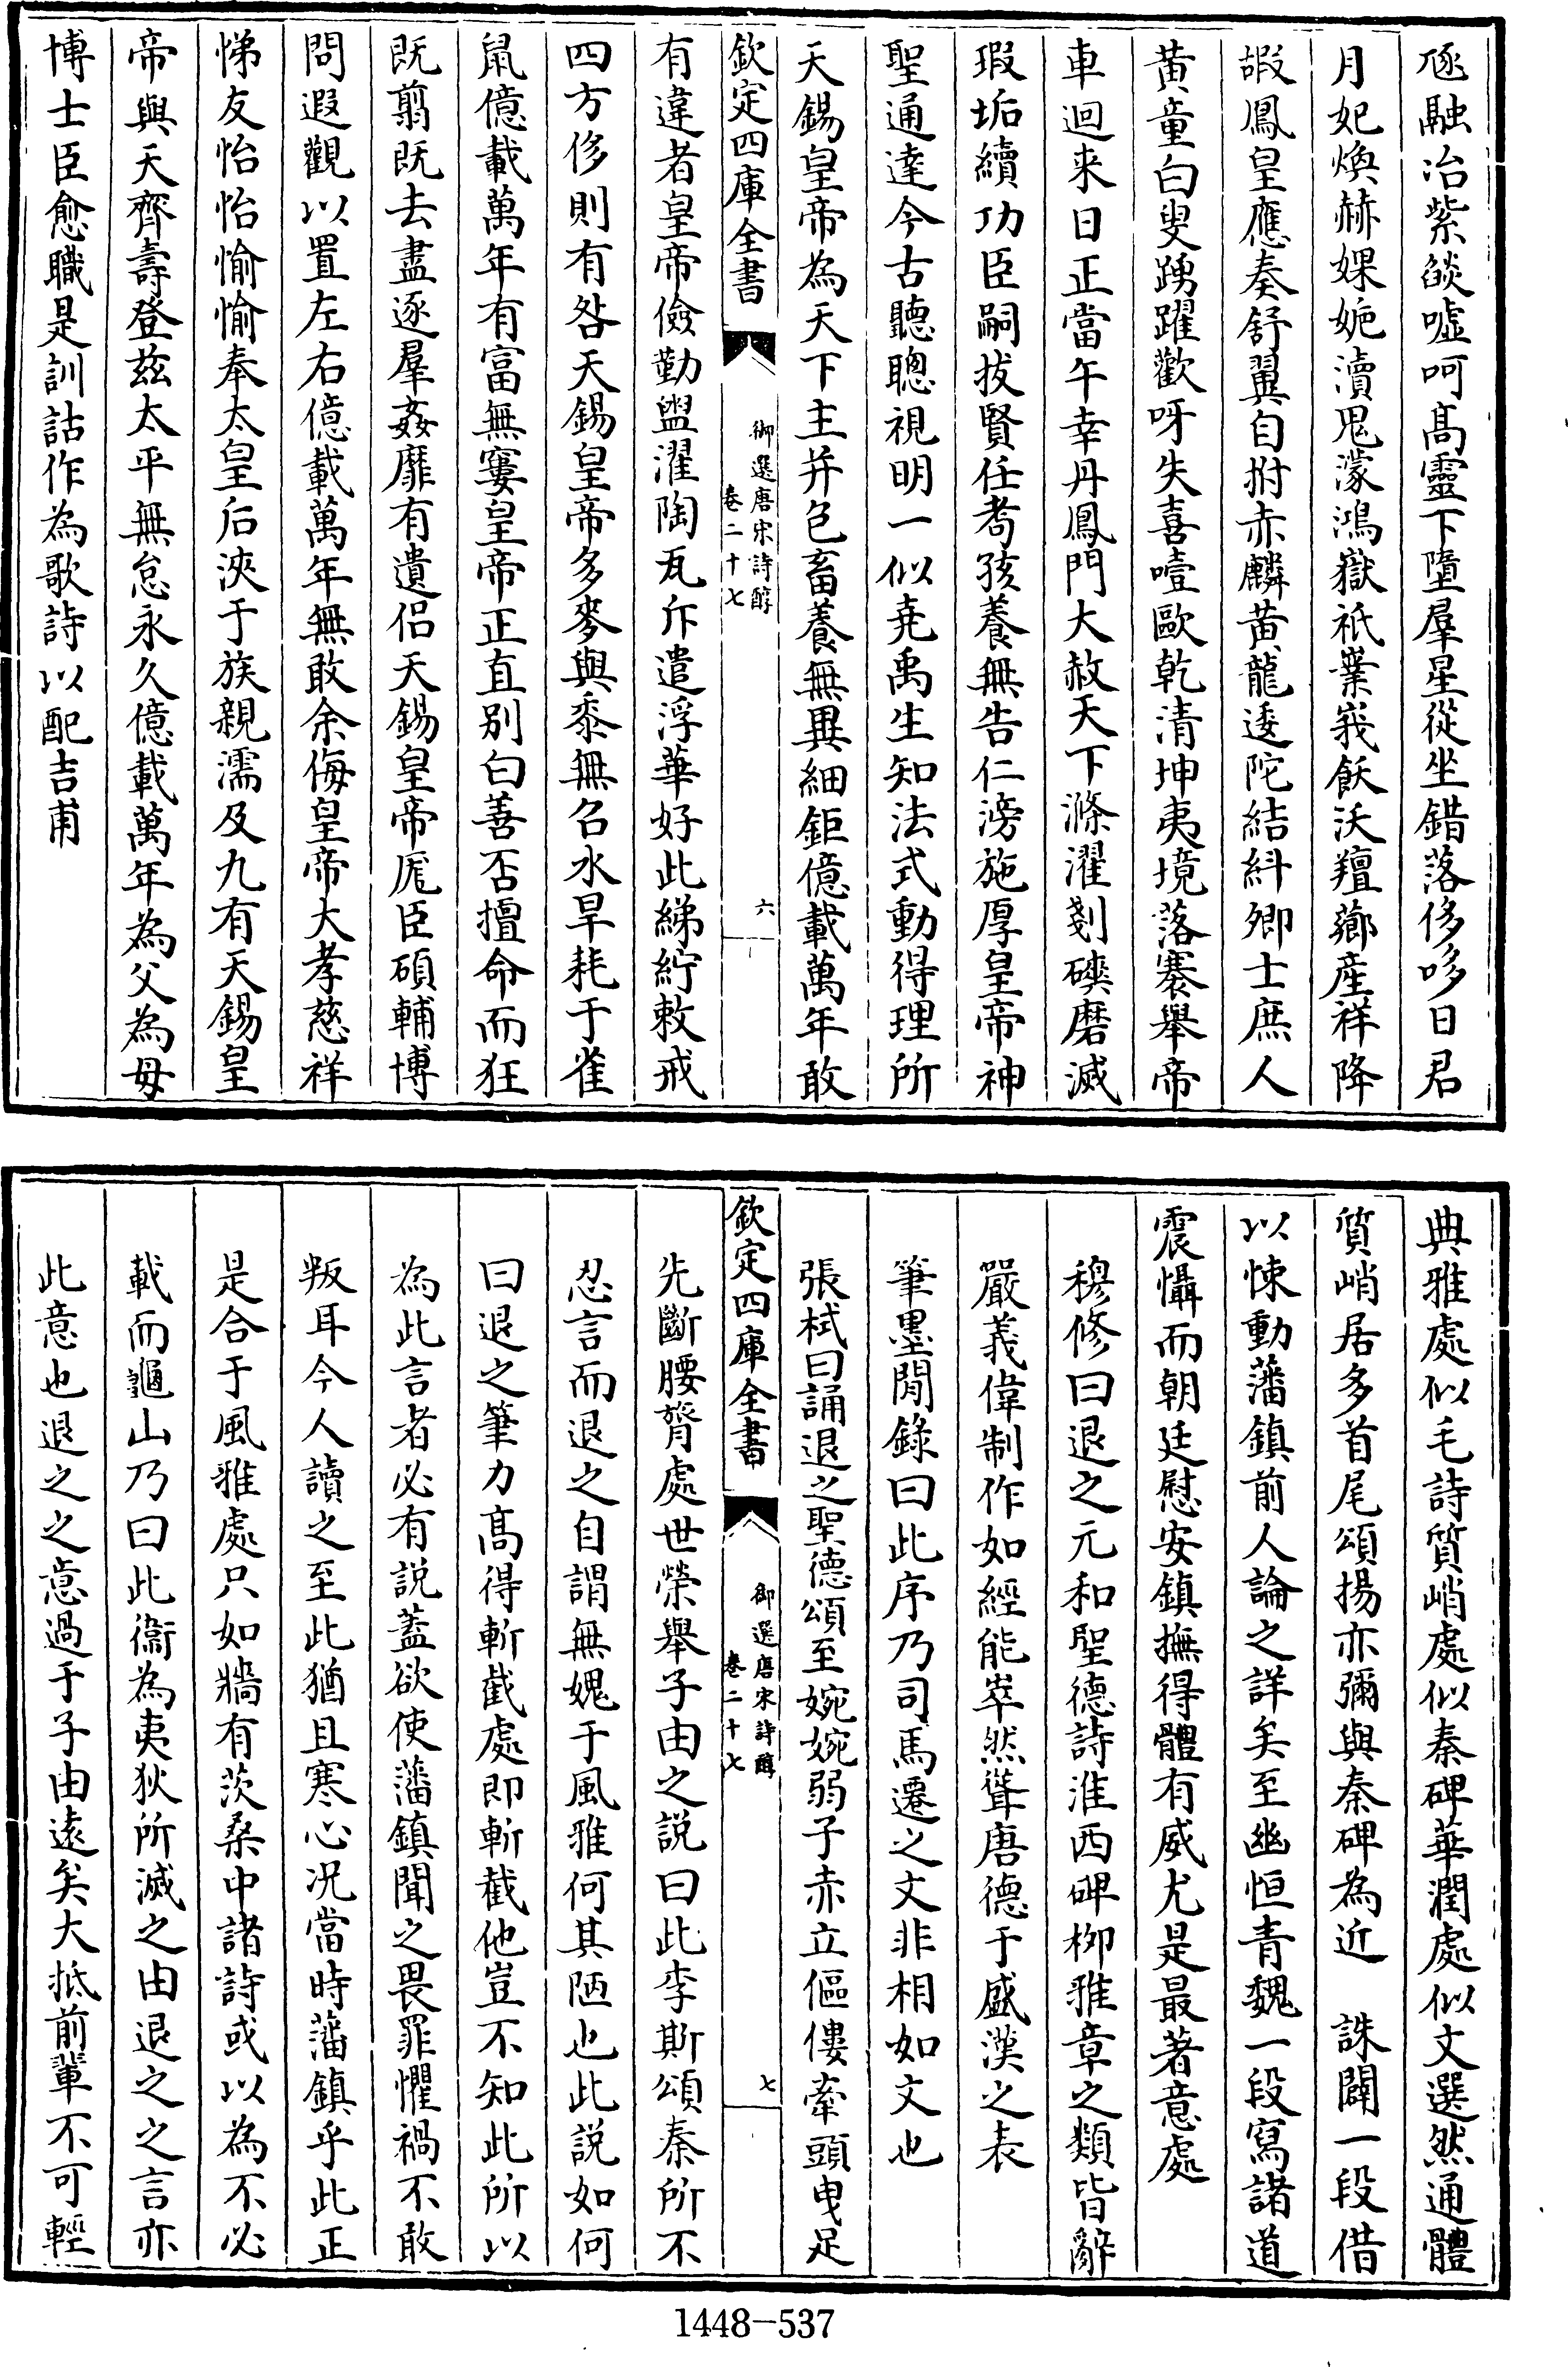 乎融冶紫燄噓呵髙靈下墮羣星從坐錯落侈哆日君
月妃煥赫婐㛂瀆鬼濛鴻嶽祇嶪峩飫沃羶薌産祥降
嘏鳳皇應奏舒翼自拊赤麟黄龍逶陀結糾卿士庶人
黄童白叟踴躍歡呀失喜噎歐乾清坤夷境落褰舉帝
車迴来日正當午幸丹鳳門大赦天下滌濯剗磢磨滅
瑕垢續功臣嗣拔賢任耇孩養無告仁滂施厚皇帝神
聖通達今古聽聰視明一似堯禹生知法式動得理所
天錫皇帝為天下主并包畜養無異細鉅億載萬年敢
欽定四庫全書
御選唐宋詩醇
卷二十七
六
有違者皇帝儉勤盥濯陶瓦斥遣浮華好此綈紵敕戒
四方侈則有咎天錫皇帝多麥與黍無召水旱耗于雀
鼠億載萬年有富無窶皇帝正直别白善否擅命而狂
既翦既去盡逐羣姦靡有遺侣天錫皇帝厖臣碩輔博
問遐觀以置左右億載萬年無敢余侮皇帝大孝慈祥
悌友怡怡愉愉奉太皇后浹于族親濡及九有天錫皇
帝與天齊壽登茲太平無怠永久億載萬年為父為母
博士臣愈職是訓詁作為歌詩以配吉甫
典雅處似毛詩質峭處似秦碑華潤處似文選然通體
質峭居多首尾頌揚亦彌與秦碑為近　誅闢一段借
以悚動藩鎮前人論之詳矣至幽恒青魏一段寫諸道
震懾而朝廷慰安鎮撫得體有威尤是最著意處
穆修曰退之元和聖德詩淮西碑柳雅章之類皆辭
嚴義偉制作如經能崒然聳唐德于盛漢之表
筆墨閒錄曰此序乃司馬遷之文非相如文也
張栻曰誦退之聖德頌至婉婉弱子赤立傴僂牽頭曳足
欽定四庫全書
御選唐宋詩醇
卷二十七
七
先斷腰膂處世榮舉子由之説曰此李斯頌秦所不
忍言而退之自謂無媿于風雅何其陋也此説如何
曰退之筆力髙得斬截處即斬截他豈不知此所以
為此言者必有説葢欲使藩鎮聞之畏罪懼禍不敢
叛耳今人讀之至此猶且寒心况當時藩鎮乎此正
是合于風雅處只如牆有茨桑中諸詩或以為不必
載而龜山乃曰此衞為夷狄所滅之由退之之言亦
此意也退之之意過于子由逺矣大抵前輩不可輕
1448-537